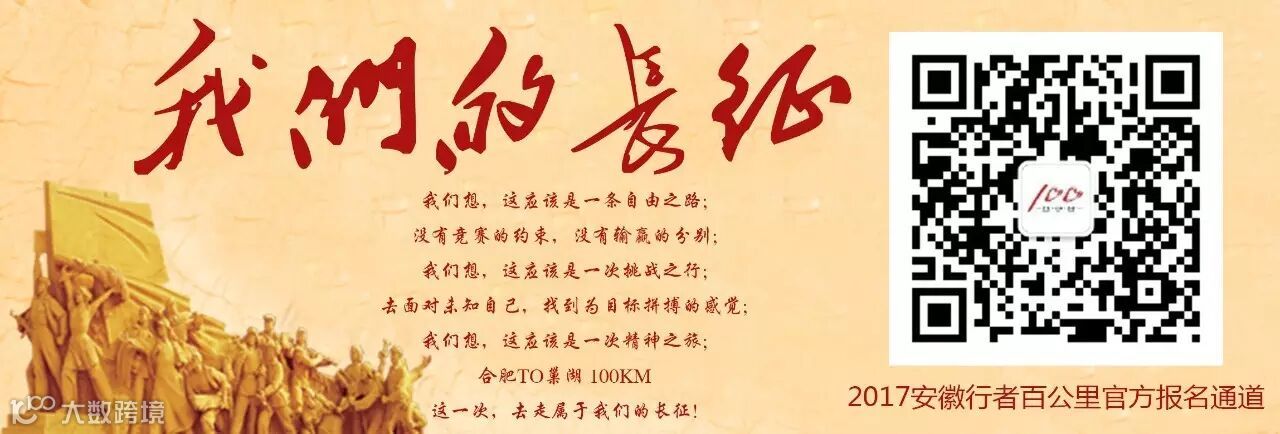 我們的長征
我们想，这应该是一条自由之路；
没有竞赛的约束，没有输赢的分别；
我们想，这应该是一次挑战之行；
去面对未知自己，找到为目标拼搏的感觉；
我们想，这应该是一次精神之旅；
合肥TO巢湖 100KM
这一次，去走属于我们的长征！
100
2017安徽行者百公里官方报名通道
大数跨境